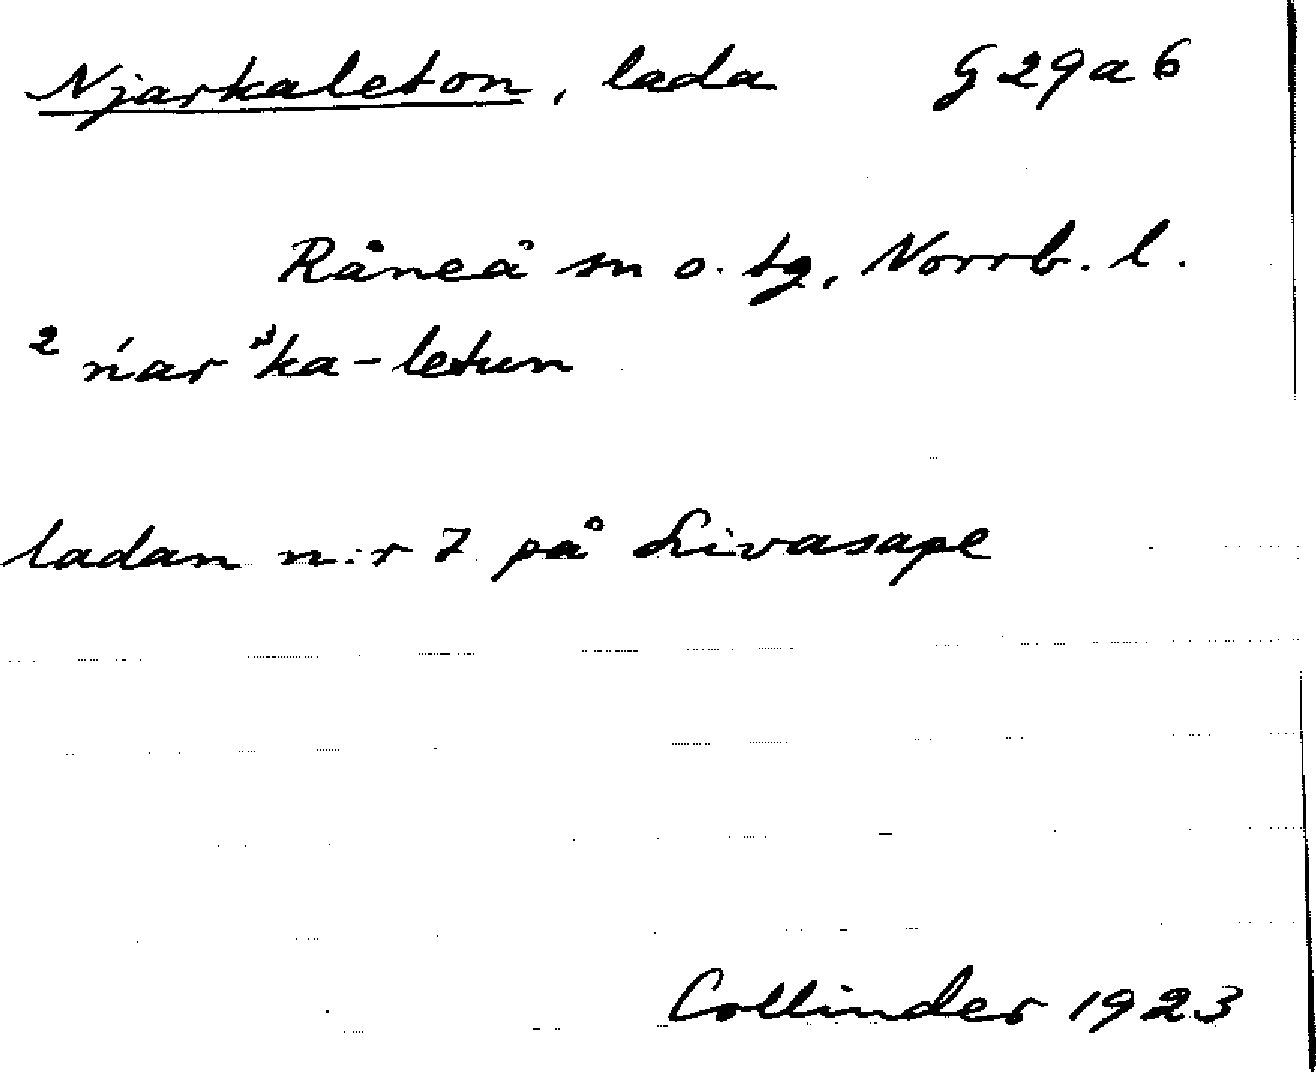 Njarkaleton, lada G 29 a 6
Råneå sn o. tg, Norrb. l.
² ńar ka-letun
ladan n:r 7 på Livasape
Collinder 1923